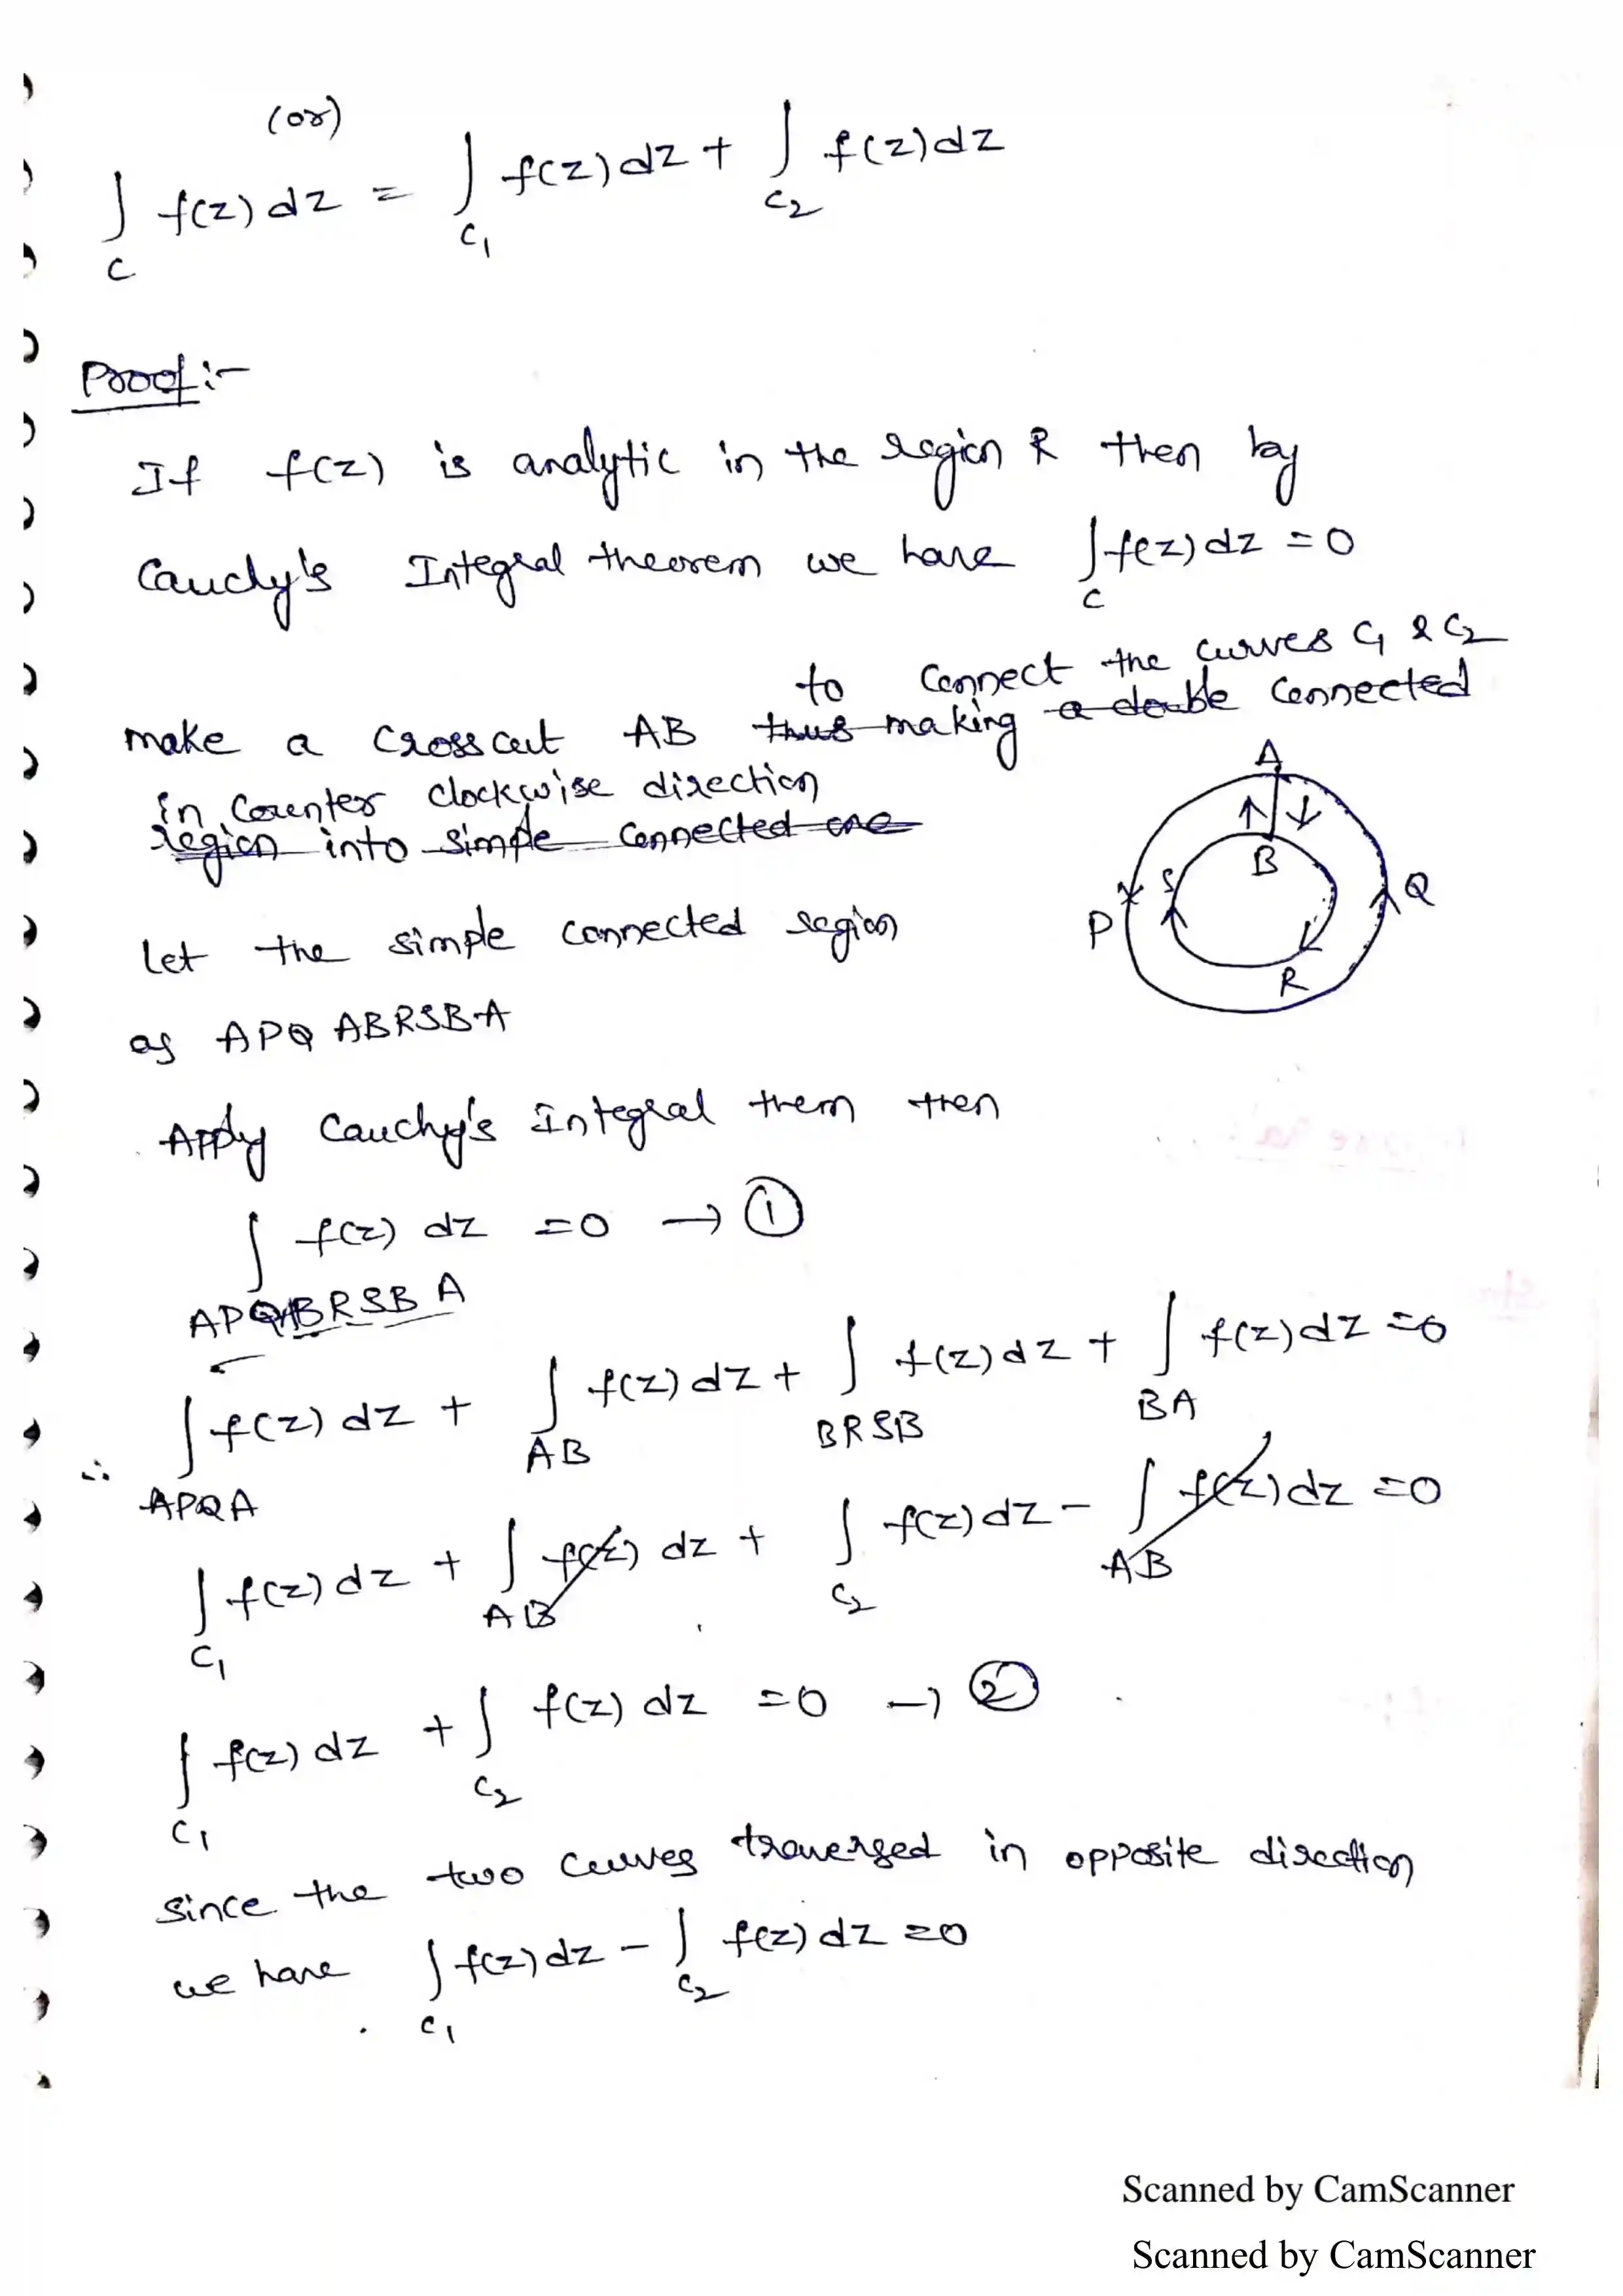 (or)
∫_C f(z) dz = ∫_{C1} f(z) dz + ∫_{C2} f(z) dz
Proof :-
If f(z) is analytic in the region R then by
Cauchy's Integral theorem we have ∫_C f(z) dz = 0
to connect the curves C1 & C2
make a cross cut AB thus making a double connected
in counter clockwise direction
region into simple connected one
Let the simple connected region
as APQ ABRSBA
Apply Cauchy's Integral them then
∫_{APQABRSBA} f(z) dz = 0 → ①
∴ ∫_{APQA} f(z) dz + ∫_{AB} f(z) dz + ∫_{BRSB} f(z) dz + ∫_{BA} f(z) dz = 0
∫_{C1} f(z) dz + ∫_{AB} f(z) dz + ∫_{C2} f(z) dz - ∫_{AB} f(z) dz = 0
∫_{C1} f(z) dz + ∫_{C2} f(z) dz = 0 → ②
since the two curves traversed in opposite direction
we have ∫_{C1} f(z) dz - ∫_{C2} f(z) dz = 0
A
B
S
Q
P
R
Scanned by CamScanner
Scanned by CamScanner